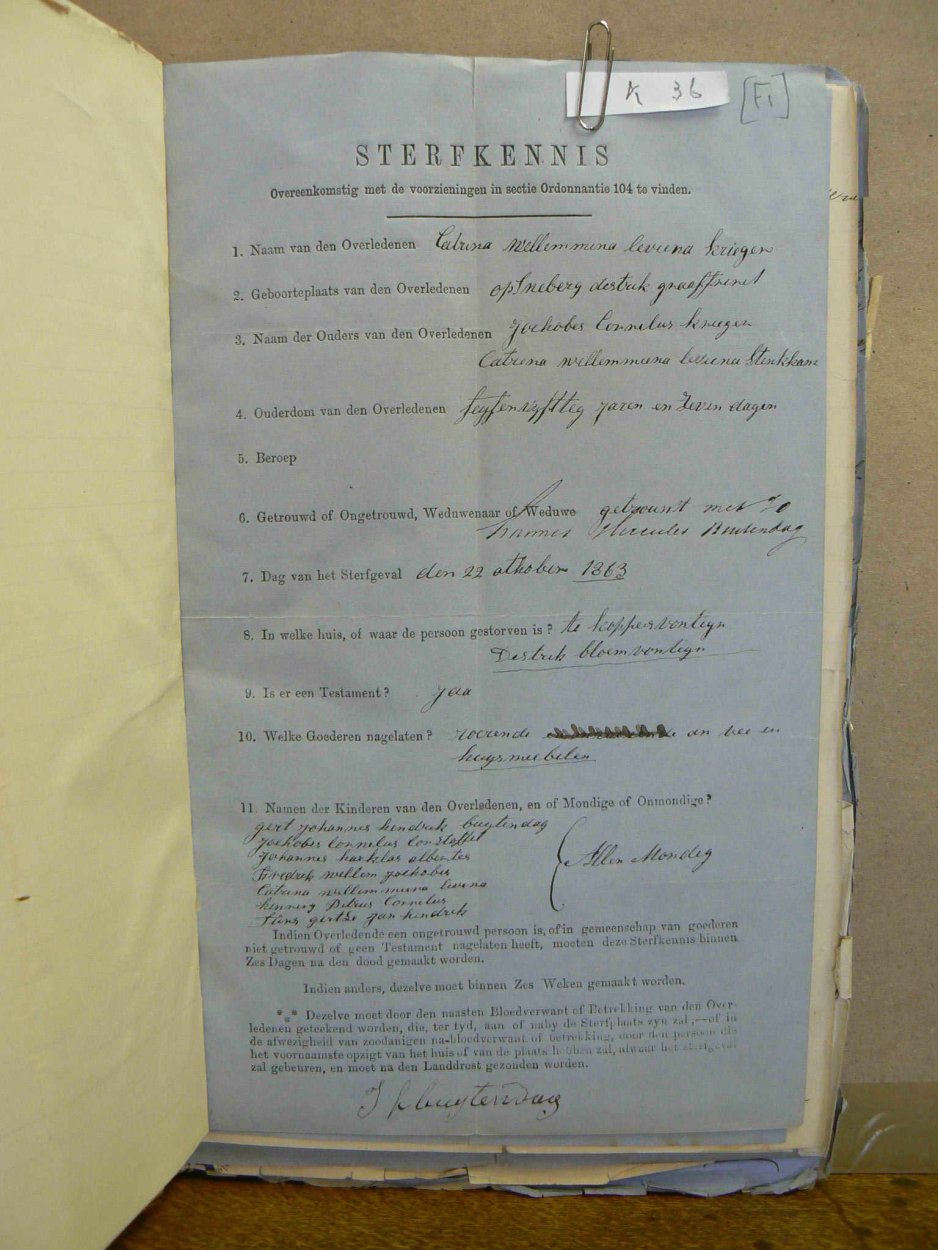 K 36
[F1]
STERFKENNIS
Overeenkomstig met de voorzieningen in sectie Ordonnantie 104 te vinden.
1. Naam van den Overledenen Catrina willemmina levina krieger
2. Geboorteplaats van den Overledenen op Sneberg destrik graaffrinet
3. Naam der Ouders van den Overledenen Joehobes Cornelus krieger
Catrina willemmina levina Stinkkam
4. Ouderdom van den Overledenen jaren en Zeven dagen
5. Beroep
6. Getrouwd of Ongetrouwd, Weduwenaar of Weduwe getrouwt met Jo
hannes Hercules Buitendag
7. Dag van het Sterfgeval den 22 oktober 1863
8. In welke huis, of waar de persoon gestorven is? te koppersvonteyn
Destrik bloemvonteyn
9. Is er een Testament? Jaa
10. Welke Goederen nagelaten? roerende an vee en
huysmeebelen
11. Namen der Kinderen van den Overledenen, en of Mondige of Onmondige?
gert Johannes hendrik buytendag
Joehobes Cornelus Constoffel
Johannes harklas albertes
Fredrik willem Joehobes
Catrina willemmina levina
Petrus Cornelus
gertse Jan hendrik
Allen Mondeg
Indien Overledende een ongetrouwd persoon is, of in gemeenschap van goederen
niet getrouwd of geen Testament nagelaten heeft, moeten deze Sterfkennis binnen
Zes Dagen na den dood gemaakt worden.
Indien anders, dezelve moet binnen Zes Weken gemaakt worden.
*** Dezelve moet door den naasten Bloedverwant of Betrekking van den Over-
ledenen geteekend worden, die, ter tyd, aan of naby de Sterfplaats zyn zal;—of in
de afwezigheid van zoodanigen na-bloedverwant of betrekking, door den persoon die
het voornaamste opzigt van het huis of van de plaats hebben zal, alwaar het sterfgeval
zal gebeuren, en moet na den Landdrost gezonden worden.
J h buytendag